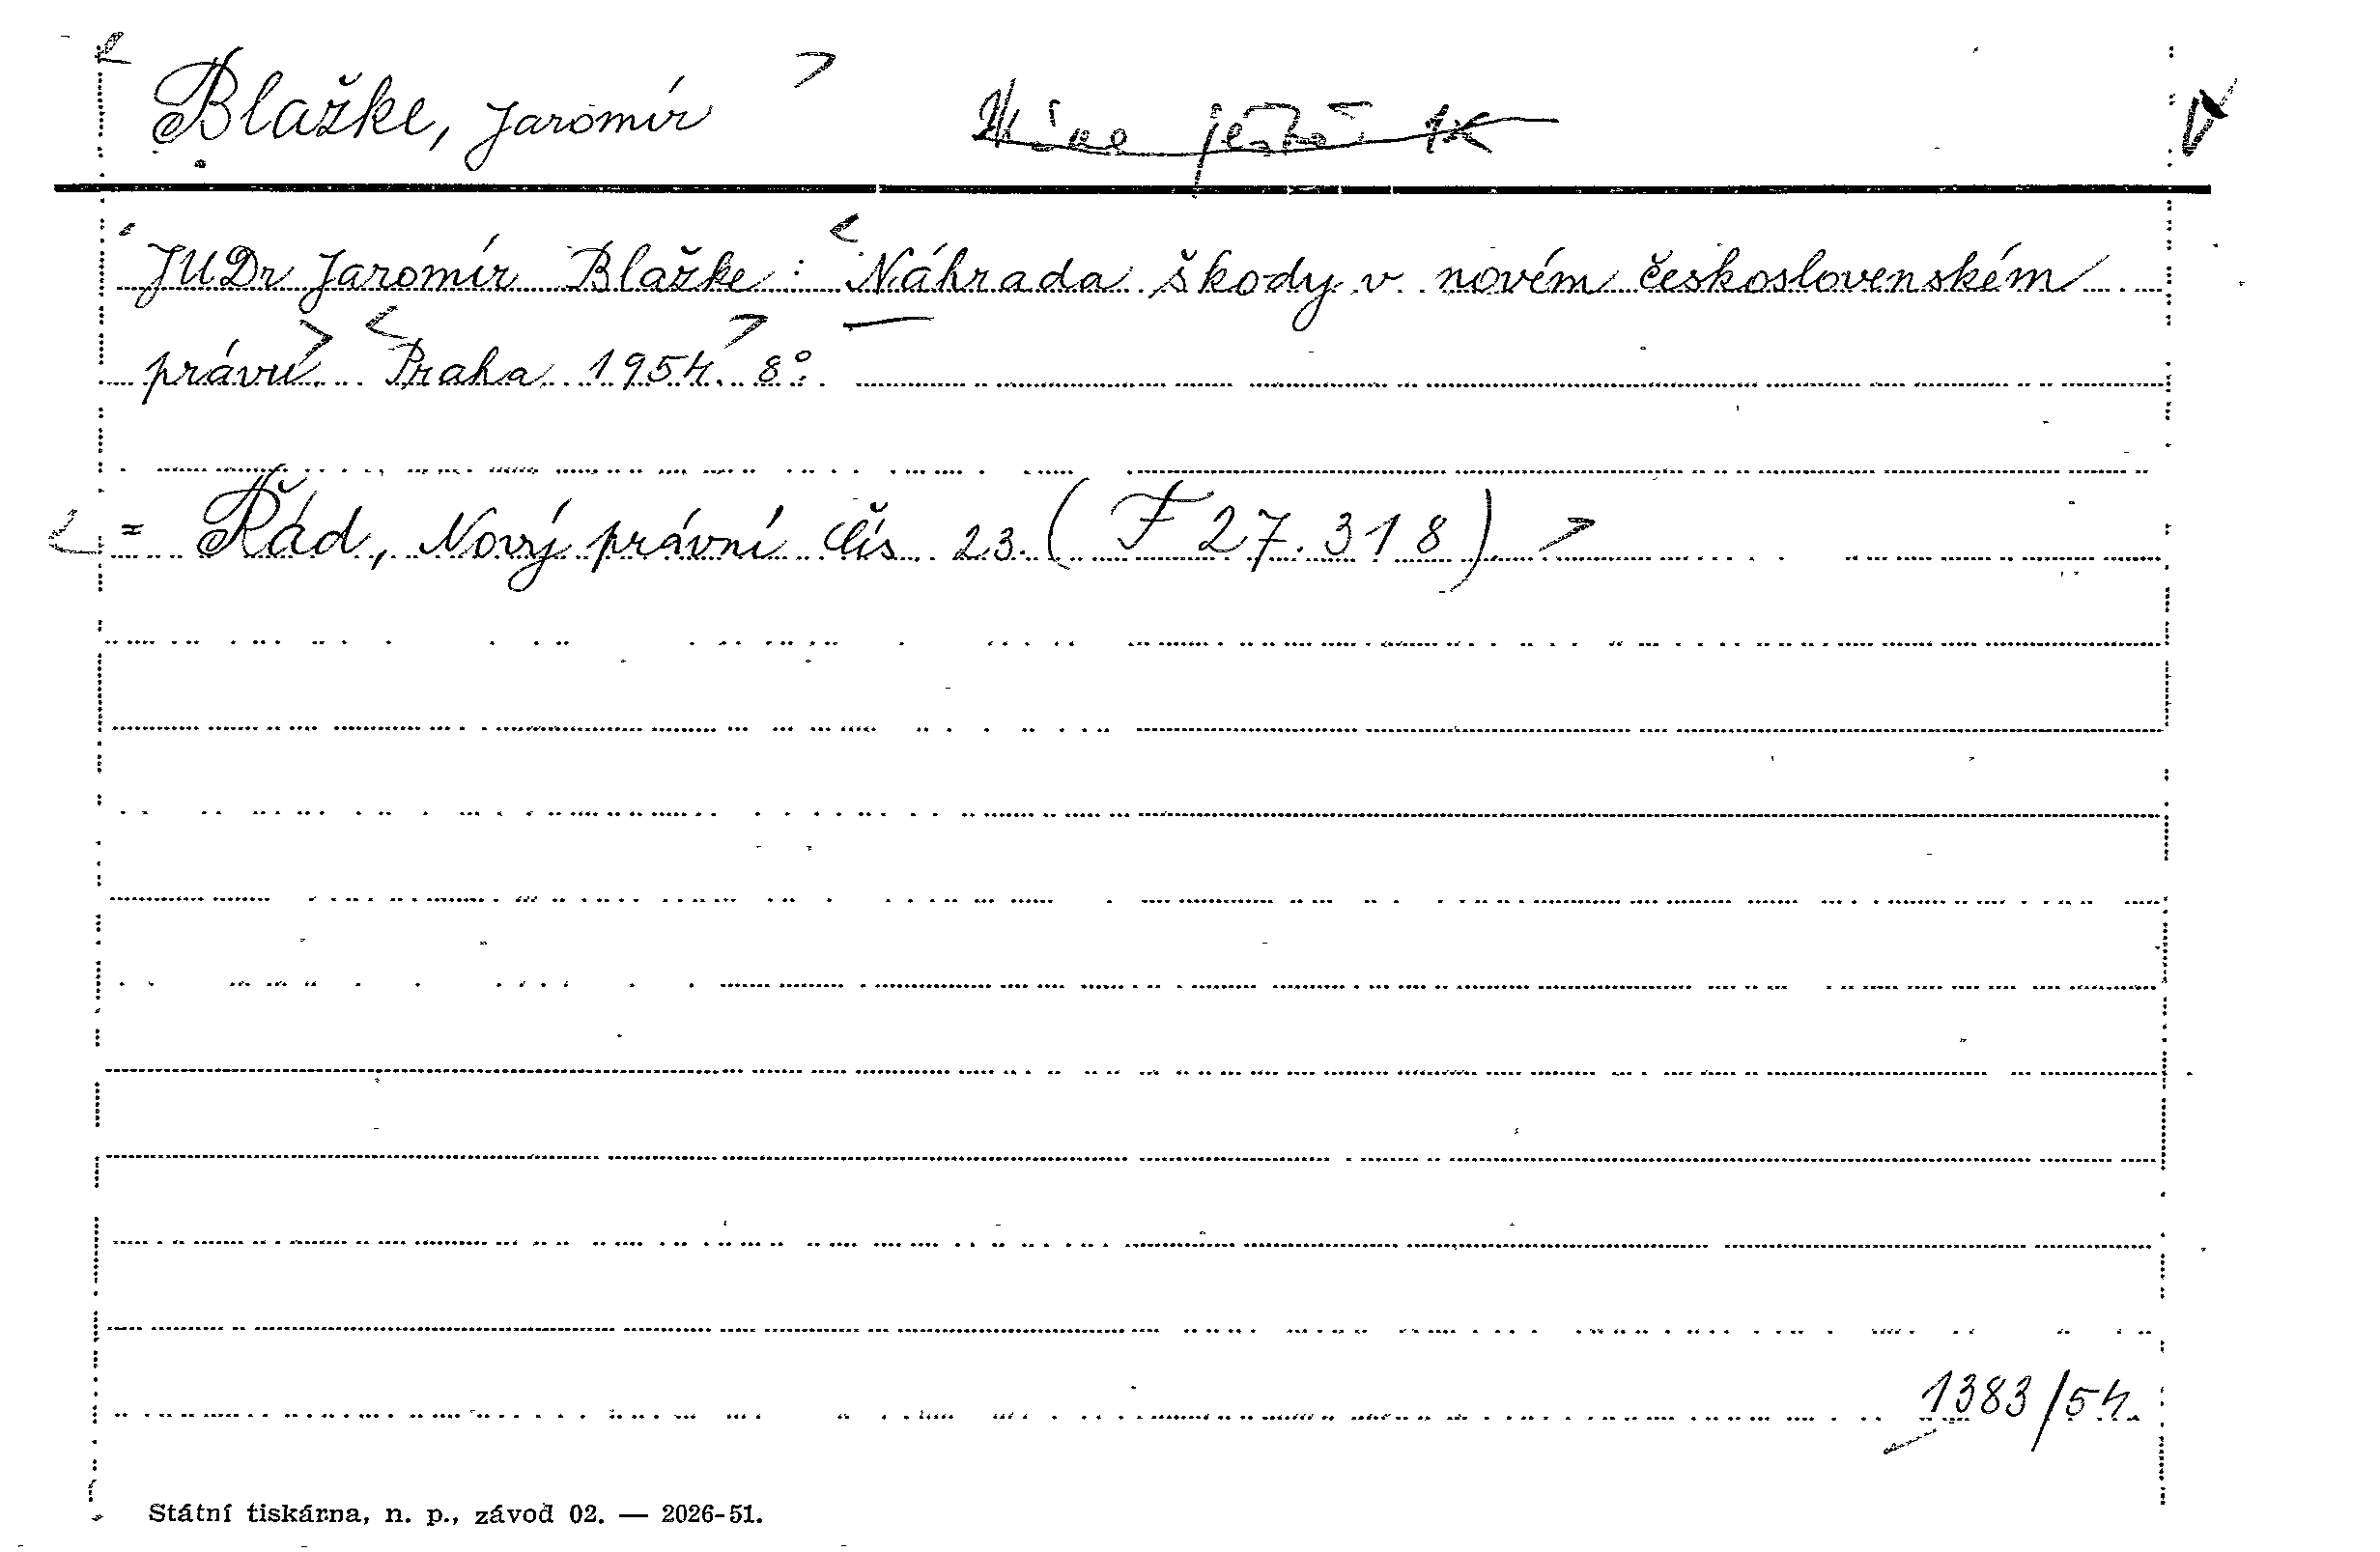 Blažke, Jaromír
JUDr Jaromír Blažke: Náhrada škody v novém československém
právu. Praha 1954. 8°.
= Řád, Nový právní čís. 23. (F 27.318)
1383/54.
Státní tiskárna, n. p., závod 02. — 2026-51.